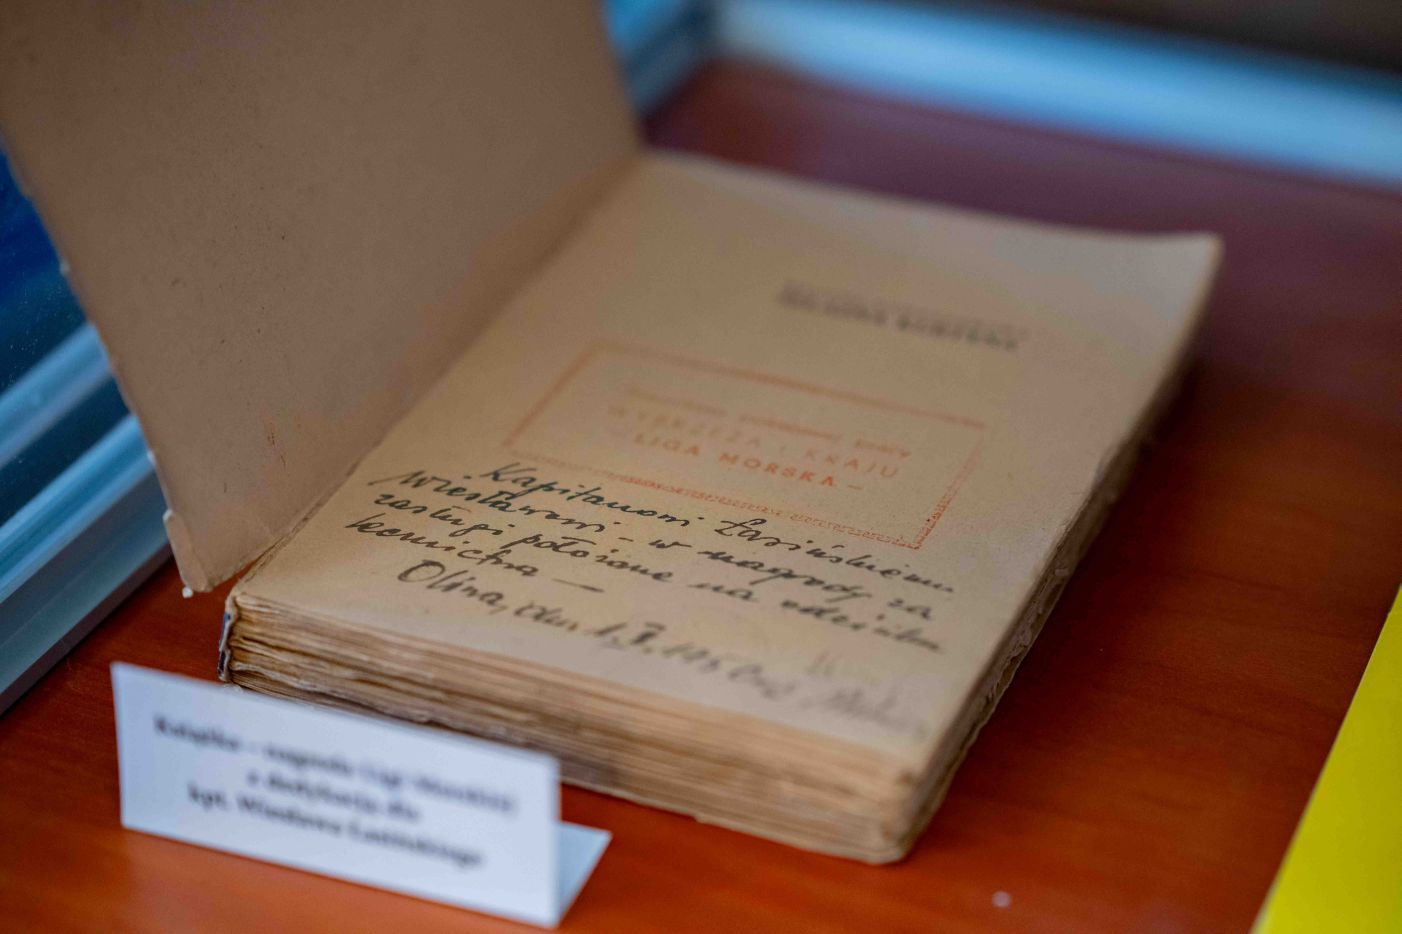 WYBRZEŻA I KRAJU
LIGA MORSKA —
Kapitanowi Łasińskiemu
Wiesławowi - w nagrodę za
zasługi położone na odcinku
Olina, dnia
Książka - nagroda Ligi Morskiej
z dedykacją dla
kpt. Wiesława Łasińskiego